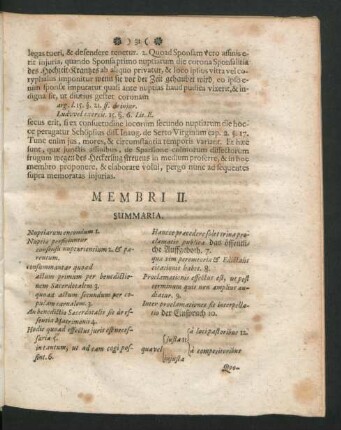 31
leges tueri, & defendere tenetur. 2. Quoad Sponsam vero assinis e-
rit injuria, quando Sponsæ primo nuptiarum die corona Sponsalitia
des Hochzeit-Krantzes ab aliquo privatur, & loco ipsius vitra vel co-
ryphalus imponitur wenn sie vor der Zeit gehaubet wird, eo ipso e-
nim sponsæ imputatur quasi ante nuptias haud pudica vixerit, & in-
digna sit, ut diutius gestet coronam
arg. l. 15. §. 21. ff. de injur.
Ludovvel exercit. 15. §. 6. Lit. E.
secus erit, si ex consuetudine locorum secundo nuptiarum die hoc-
ce peragatur Schöpffius diss. Inaug. de Serto Virginum cap. 2. §. 17.
Tunc enim jus, mores, & circumstantia temporis variant. Et hæc
sunt, quæ junctis assinibus, de Sponsione culmorum dissectorum
erugum wegen des Heckerling streuens in medium proferre, & in hoc
membro proponere, & elaborare volui, pergo nunc ad sequentes
supra memoratas injurias.
MEMBRI II.
SUMMARIA.
Nuptiarum encomium 1.
Nuptiæ perficiuntur
consensu nupturientium 2. & pa-
rentum.
consummantur quoad
actum primum per benedictio-
nem Sacerdotalem 3.
quoad actum secundum per co-
pulam carnalem 3.
An benedictio Sacerdotalis sit de es-
sentia Matrimonii 4.
Hodie quoad effectus juris est neces-
saria 5.
in tantum, ut ad eam cogi pos-
sint. 6.
Hancce præcedere solet trina pro-
clamatio publica das öffentli-
che Auffgeboth. 7.
quæ vim peremtoriæ & Edictalis
citationis habet. 8.
Proclamationis effectus est, ut post
terminum quis non amplius au-
diatur. 9.
Inter proclamationes sit interpella-
tio der Einspruch 10.
quæ vel
justa 11
injusta
à loci pastoribus 12.
à competitoribus
quo-